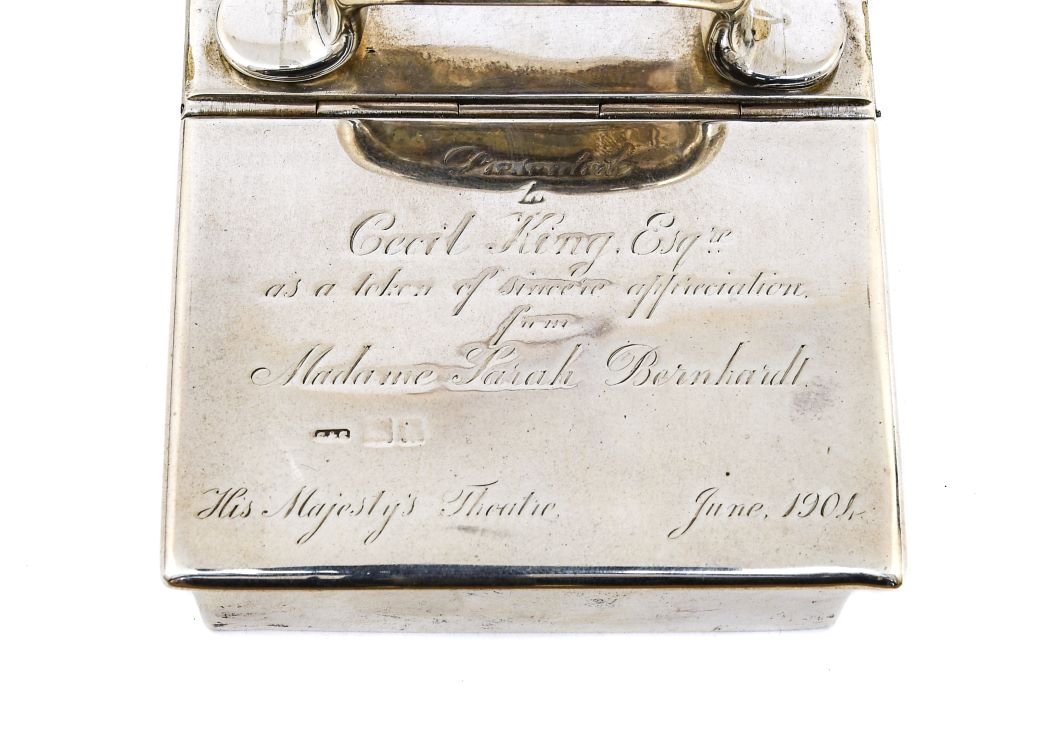 Presented
to
Cecil King, Esqre
as a token of sincere appreciation,
from
Madame Sarah Bernhardt.
His Majesty's Theatre,
June, 1904.